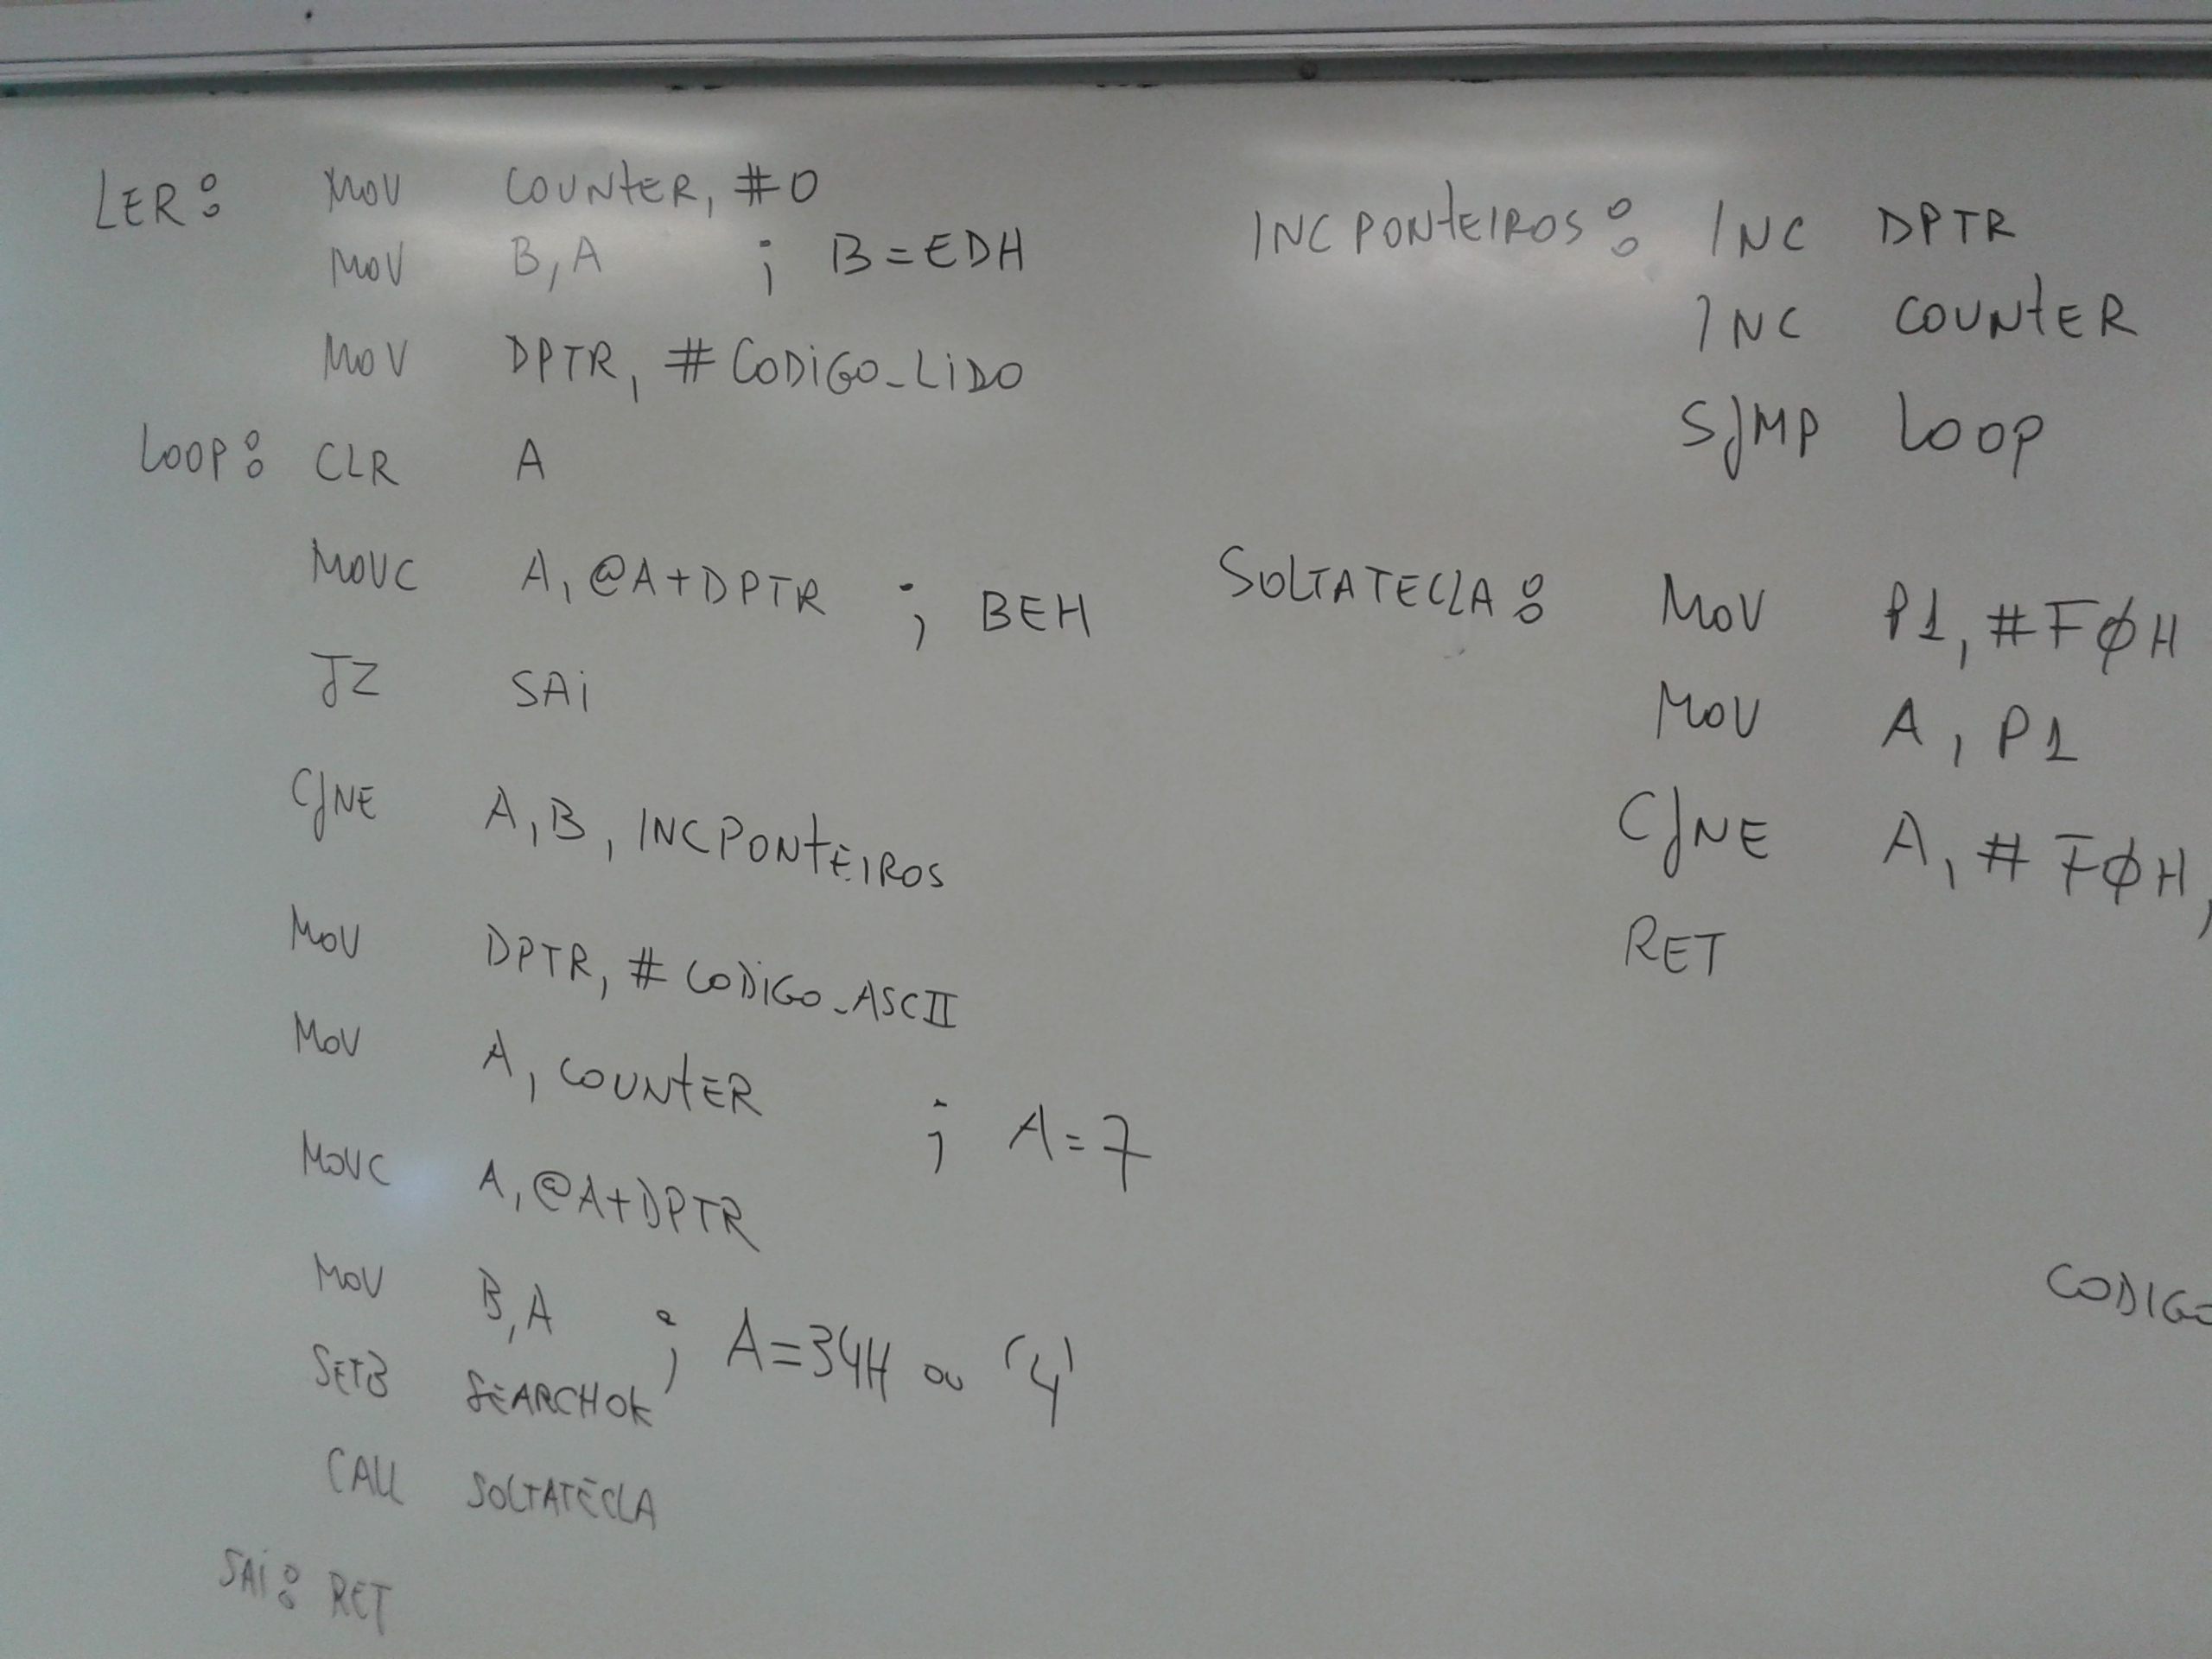 LER: MOV COUNTER, #0
MOV B, A ; B=EDH
MOV DPTR, #CODIGO_LIDO
LOOP: CLR A
MOVC A, @A+DPTR ; BEH
JZ SAI
CJNE A, B, INCPONTEIROS
MOV DPTR, #CODIGO_ASCII
MOV A, COUNTER ; A=7
MOVC A, @A+DPTR
MOV B, A ; A=34H ou '4'
SETB SEARCHOK
CALL SOLTATECLA
SAI: RET
INCPONTEIROS: INC DPTR
INC COUNTER
SJMP LOOP
SOLTATECLA: MOV P1, #FØH
MOV A, P1
CJNE A, #FØH,
RET
CODIGO